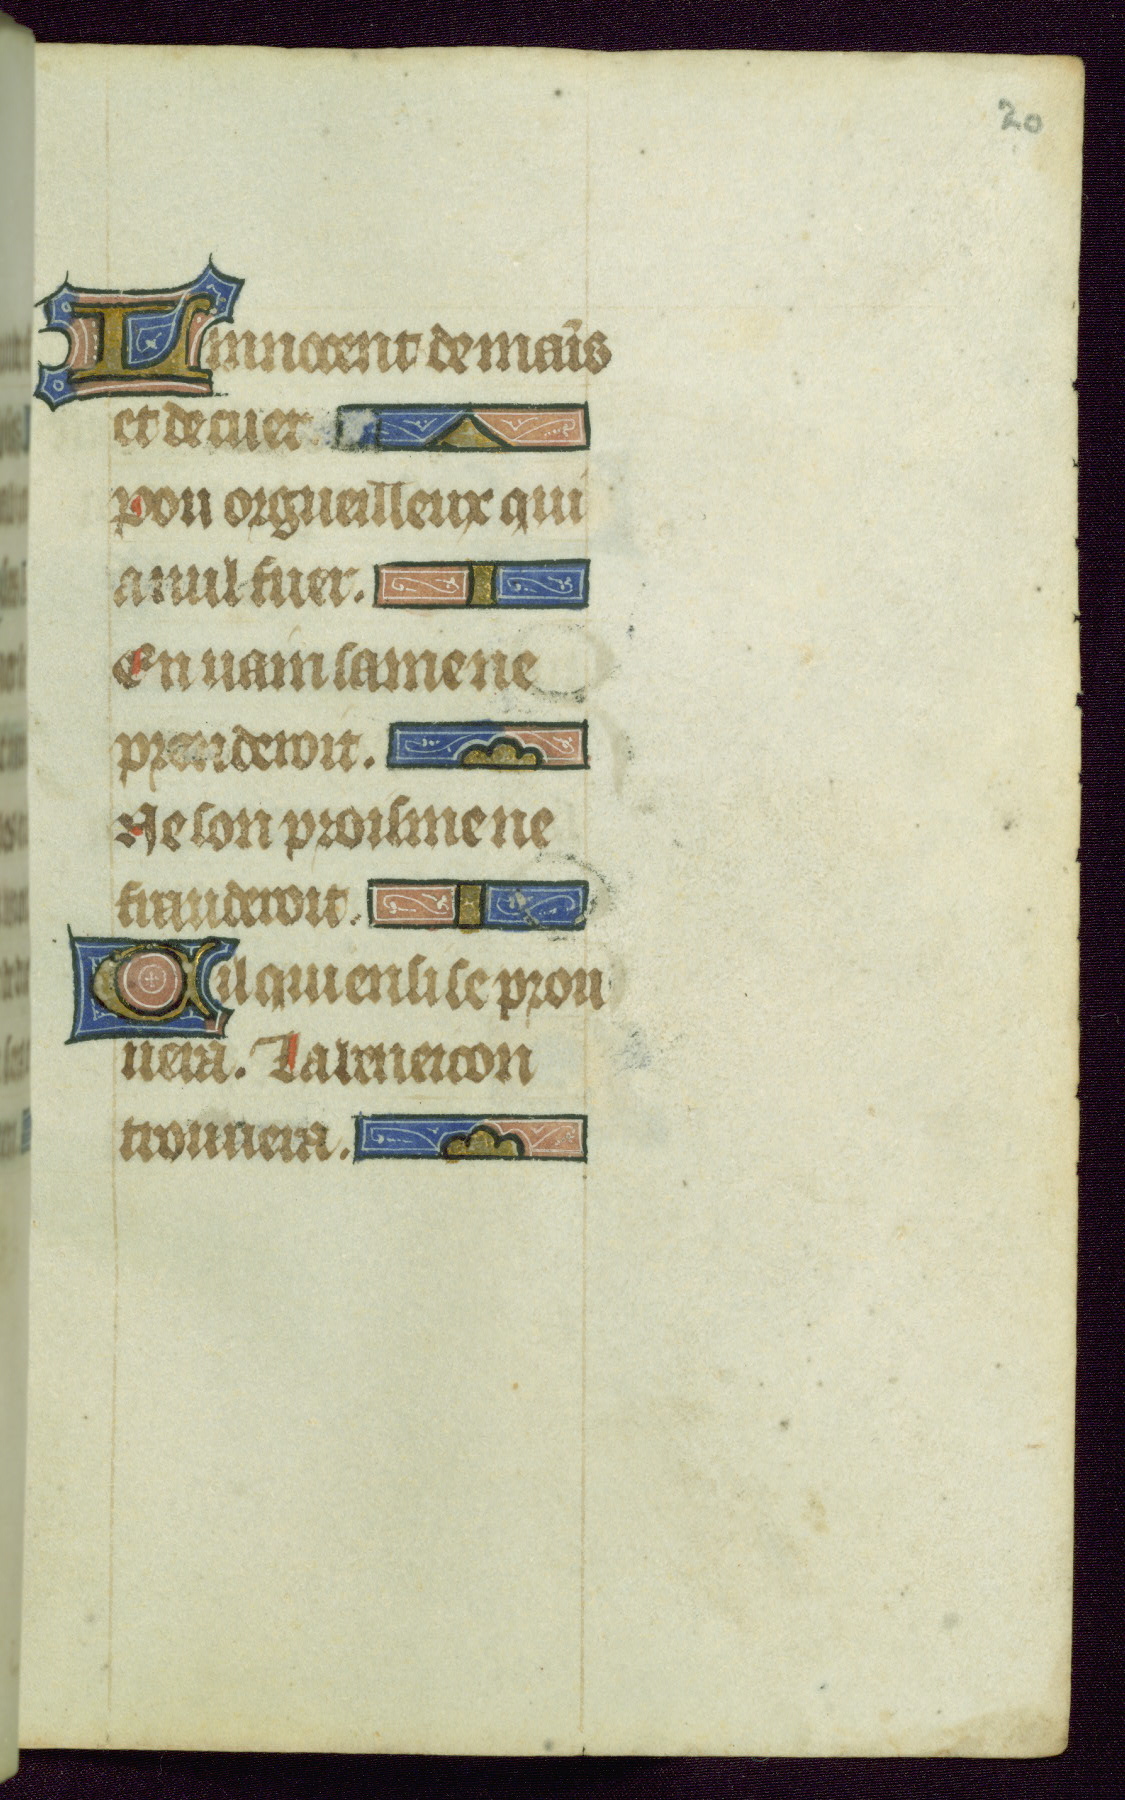 20
Linnocent de mai̅s
et de cuer.
Non orgueilleux qui
a nul fuer.
En uain same ne
prenderoit.
Ne son proisme ne
frauderoit.
Cil qui ensi se prou
uera. La benei con
trouuera.